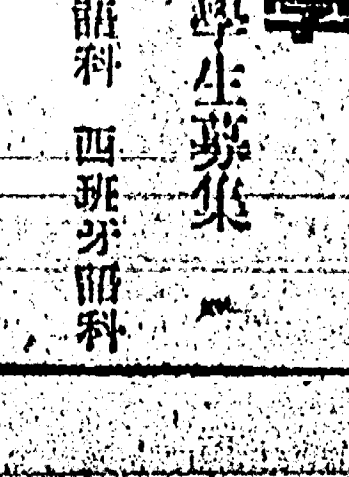 學
學生募集
語科 西班牙語科